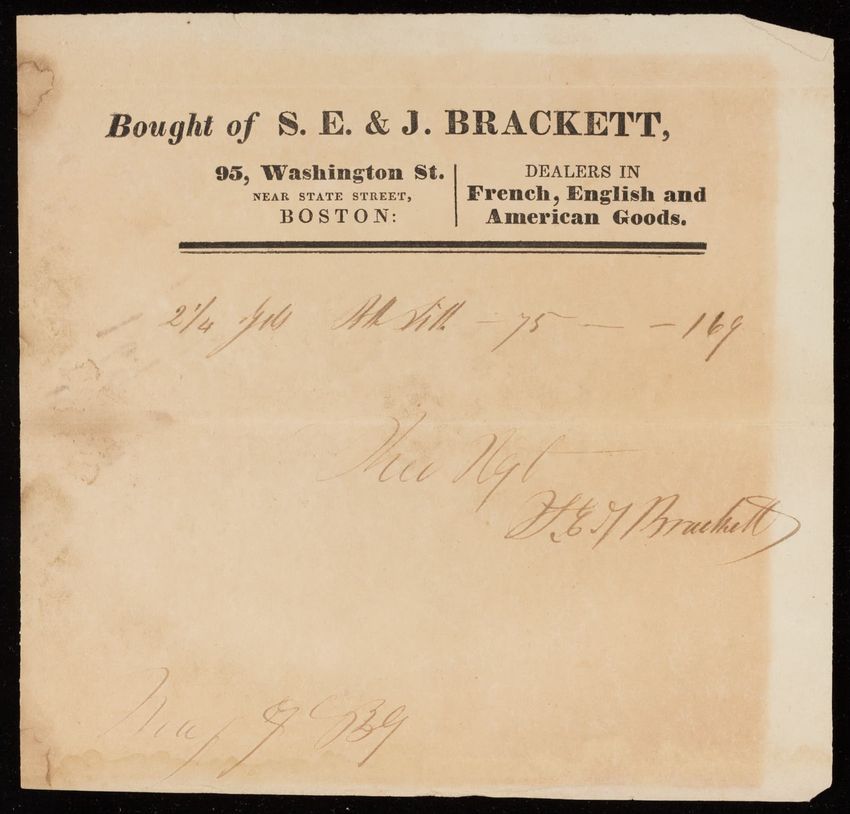 Bought of S. E. & J. BRACKETT,
95, Washington St.
NEAR STATE STREET,
BOSTON:
DEALERS IN
French, English and
American Goods.
2 1/4 Yds Silk - 75 - - 169
S. E. & J Brackett